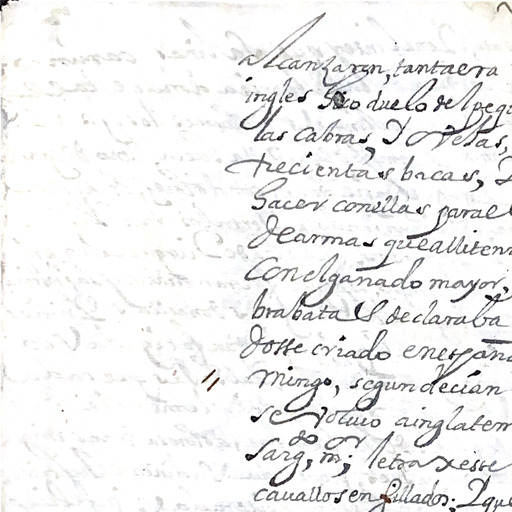 alcanzaron, tanta era
ingles hizo duelo del pequ
las cabras, y ovejas,
trecientas bacas, y
hacer con ellas para el
de armas que alli teni
Con el ganado mayor,
brabatas declaraba
dosse criado en españa
mingo, segun decian
se volvio a inglaterr
sarg.do m.r; letra x este
cavallos ensillados: y que